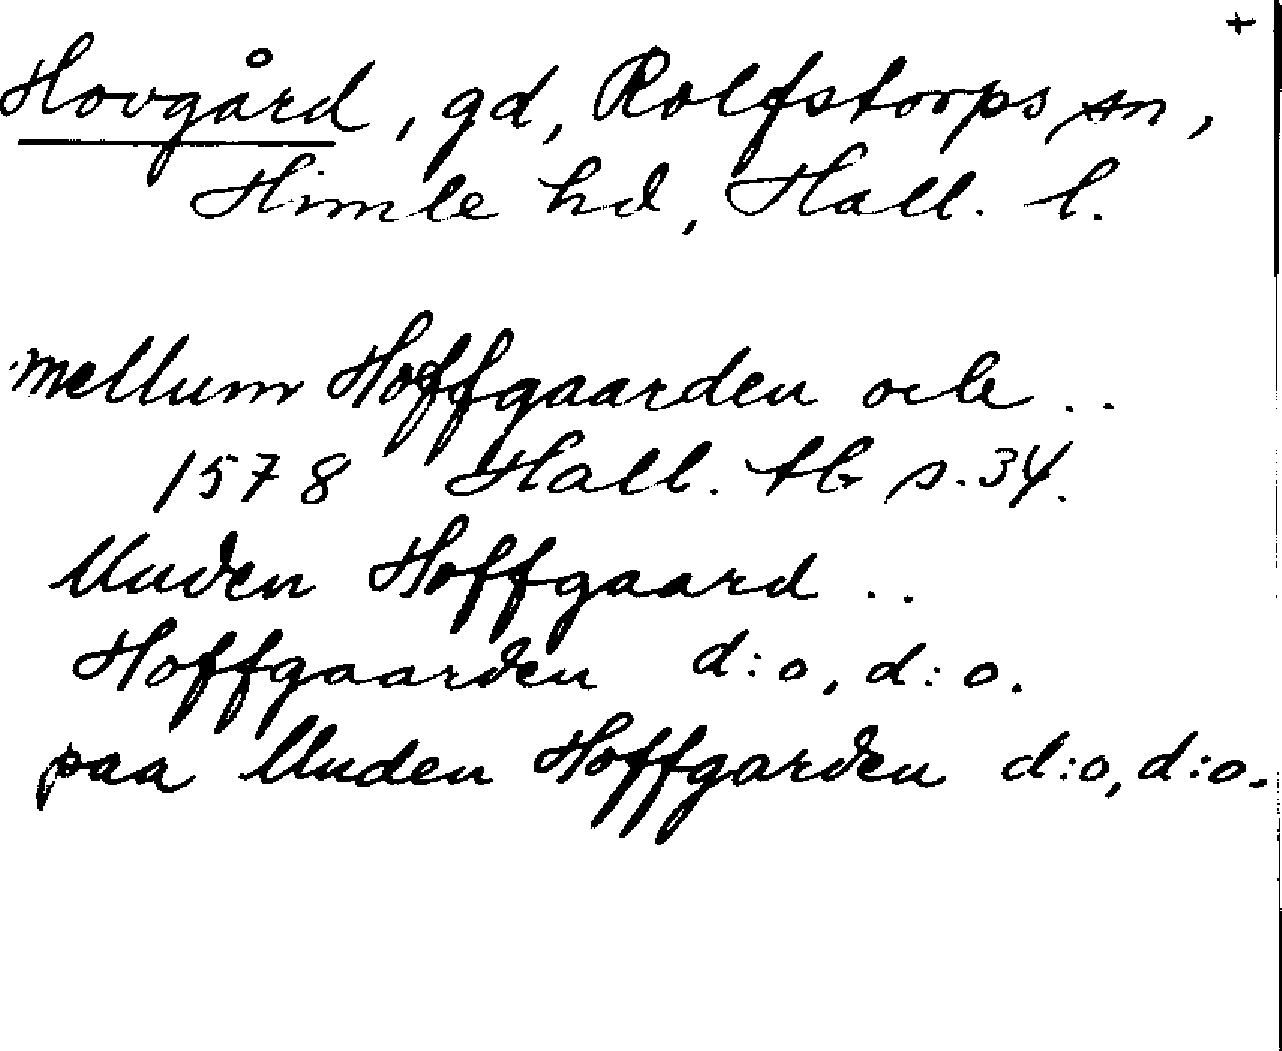 +
Hovgård, gd, Rolfstorps sn,
Himle hd, Hall. l.
mellum Hoffgaarden ock ..
1578 Hall. tb s. 34.
Unden Hoffgaard ..
Hoffgaarden d:o, d:o.
paa Unden Hoffgarden d:o, d:o.